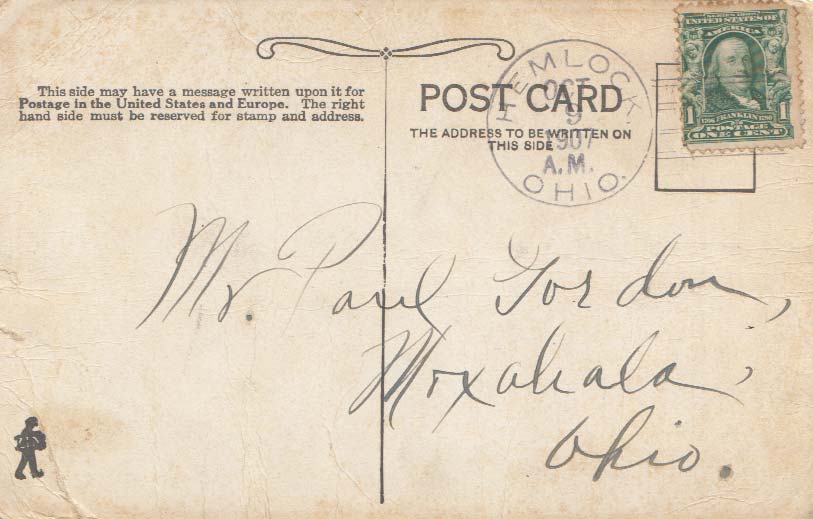 This side may have a message written upon it for
Postage in the United States and Europe. The right
hand side must be reserved for stamp and address.
POST CARD
THE ADDRESS TO BE WRITTEN ON
THIS SIDE
HEMLOCK.
OCT
9
1907
A.M.
OHIO.
UNITED STATES OF
AMERICA
1 1706 FRANKLIN 1790 1
POSTAGE
ONE CENT
Mr. Paul Gordon,
Moxahala,
Ohio.